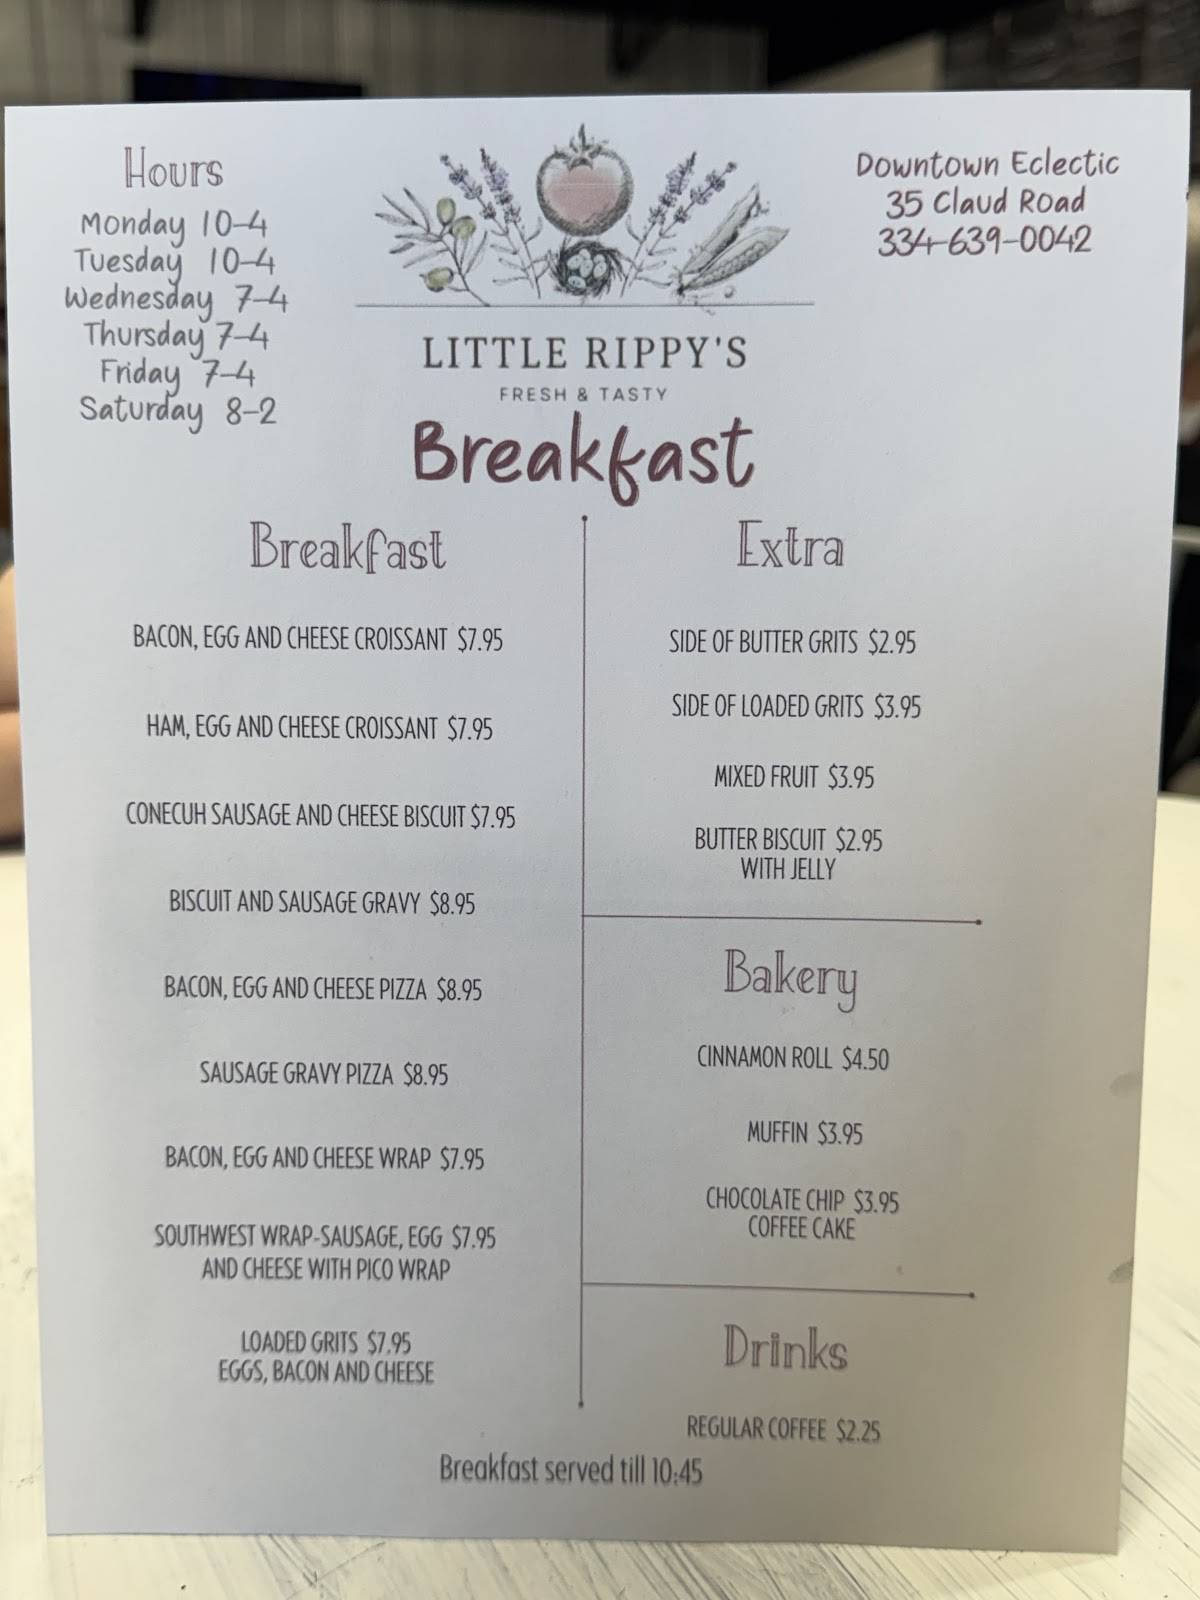 Hours
Monday 10-4
Tuesday 10-4
Wednesday 7-4
Thursday 7-4
Friday 7-4
Saturday 8-2
Downtown Eclectic
35 Claud Road
334-639-0042
LITTLE RIPPY'S
FRESH & TASTY
Breakfast
Breakfast
BACON, EGG AND CHEESE CROISSANT $7.95
HAM, EGG AND CHEESE CROISSANT $7.95
CONECUH SAUSAGE AND CHEESE BISCUIT $7.95
BISCUIT AND SAUSAGE GRAVY $8.95
BACON, EGG AND CHEESE PIZZA $8.95
SAUSAGE GRAVY PIZZA $8.95
BACON, EGG AND CHEESE WRAP $7.95
SOUTHWEST WRAP-SAUSAGE, EGG $7.95
AND CHEESE WITH PICO WRAP
LOADED GRITS $7.95
EGGS, BACON AND CHEESE
Extra
SIDE OF BUTTER GRITS $2.95
SIDE OF LOADED GRITS $3.95
MIXED FRUIT $3.95
BUTTER BISCUIT $2.95
WITH JELLY
Bakery
CINNAMON ROLL $4.50
MUFFIN $3.95
CHOCOLATE CHIP $3.95
COFFEE CAKE
Drinks
REGULAR COFFEE $2.25
Breakfast served till 10:45